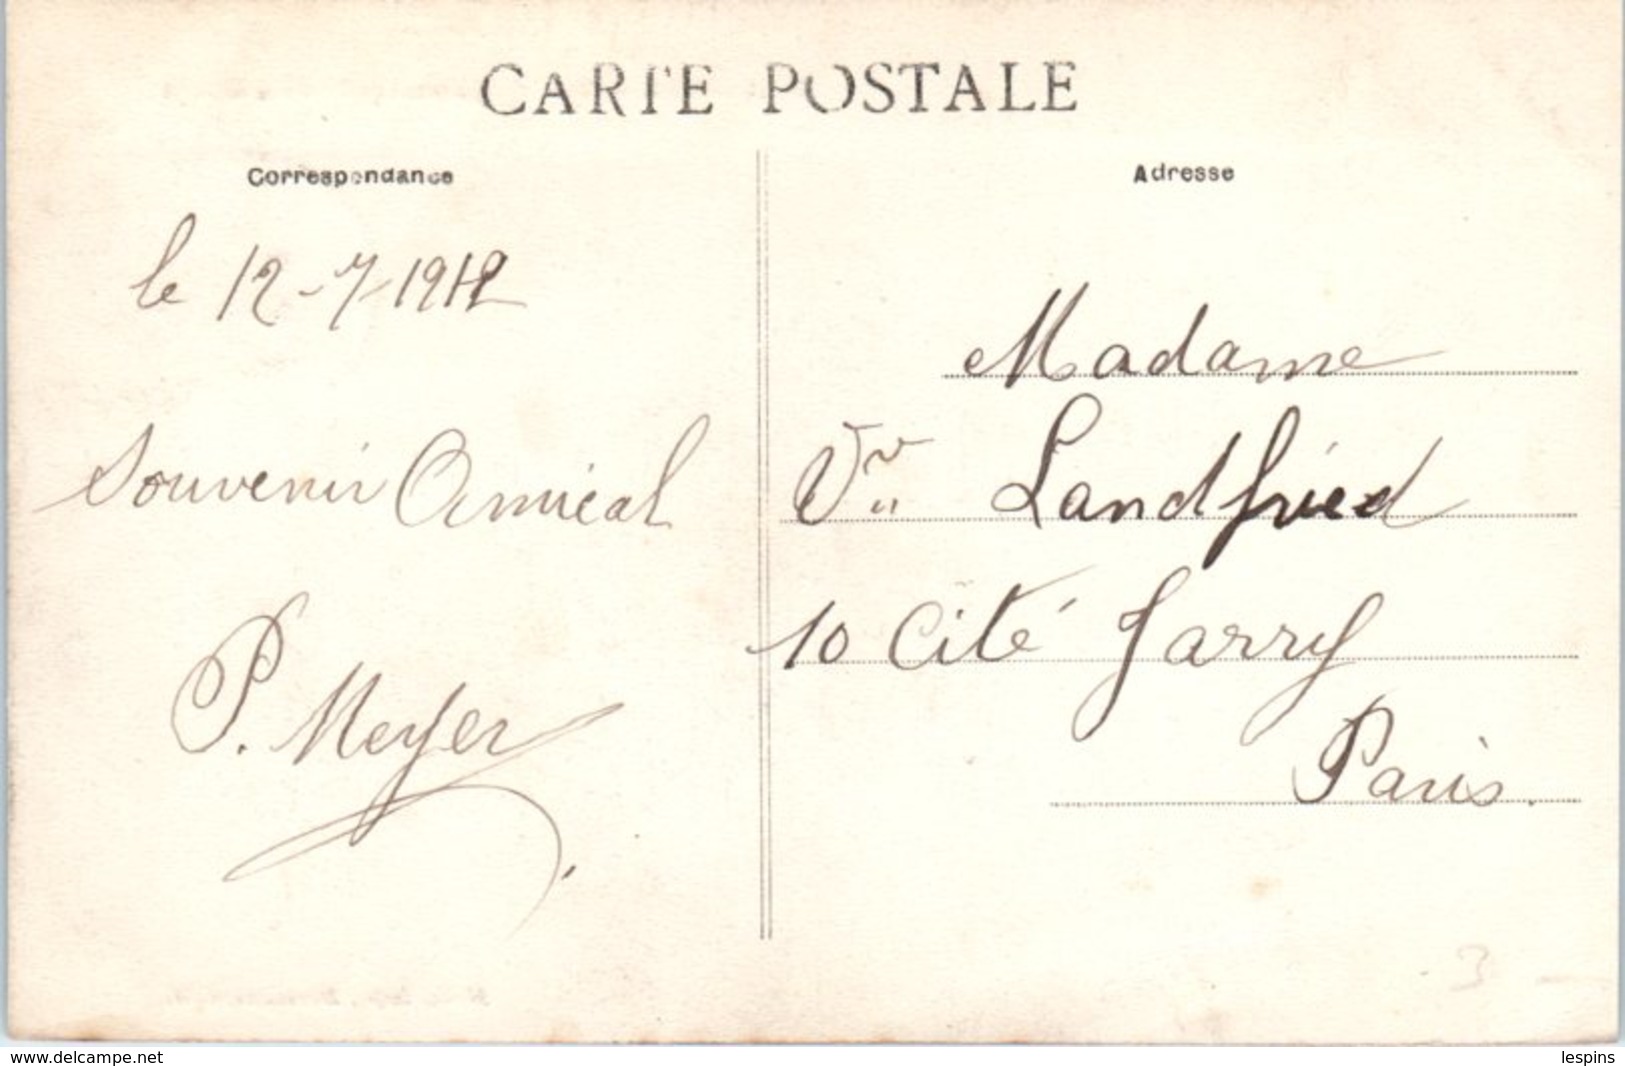 CARTE POSTALE
Correspondance
Adresse
le 12-7-1912
Souvenir Amical
P. Meyer
Madame
Vve Landfried
10 Cité Jarry
Paris.
3
www.delcampe.net
lespins